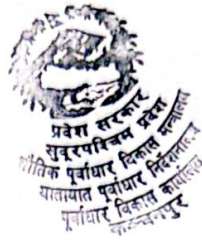 प्रदेश सरकार
सुदूरपश्चिम प्रदेश
भौतिक पूर्वाधार विकास मन्त्रालय
यातायात पूर्वाधार निर्देशनालय
पूर्वाधार विकास कार्यालय
कञ्चनपुर